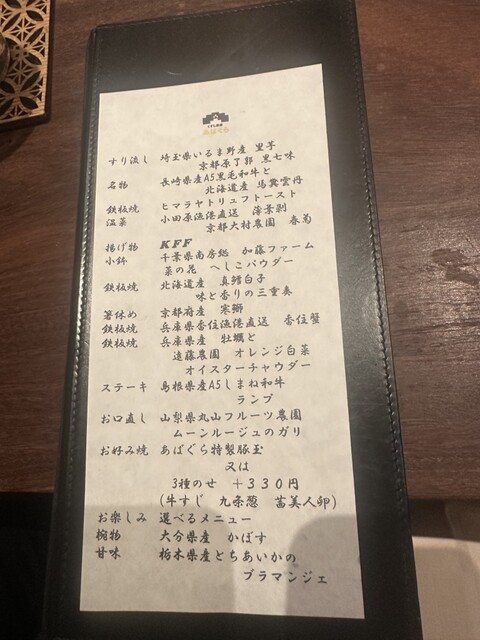 あばぐら
すり流し 埼玉県いるま野産 里芋
京都原了郭 黒七味
名物 長崎県産A5黒毛和牛と
北海道産 馬糞雲丹
鉄板焼 ヒマラヤトリュフトースト
温菜 小田原漁港直送 薄葉剥
京都大村農園 春菊
揚げ物 KFF
小鉢 千葉県南房総 加藤ファーム
菜の花 へしこパウダー
鉄板焼 北海道産 真鱈白子
味と香りの三重奏
箸休め 京都府産 寒鰤
鉄板焼 兵庫県香住漁港直送 香住蟹
鉄板焼 兵庫県産 牡蠣と
遠藤農園 オレンジ白菜
オイスターチャウダー
ステーキ 島根県産A5しまね和牛
ランプ
お口直し 山梨県丸山フルーツ農園
ムーンルージュのガリ
お好み焼 あばぐら特製豚玉
又は
3種のせ +330円
(牛すじ 九条葱 冨美人卵)
お楽しみ 選べるメニュー
椀物 大分県産 かぼす
甘味 栃木県産とちあいかの
ブラマンジェ